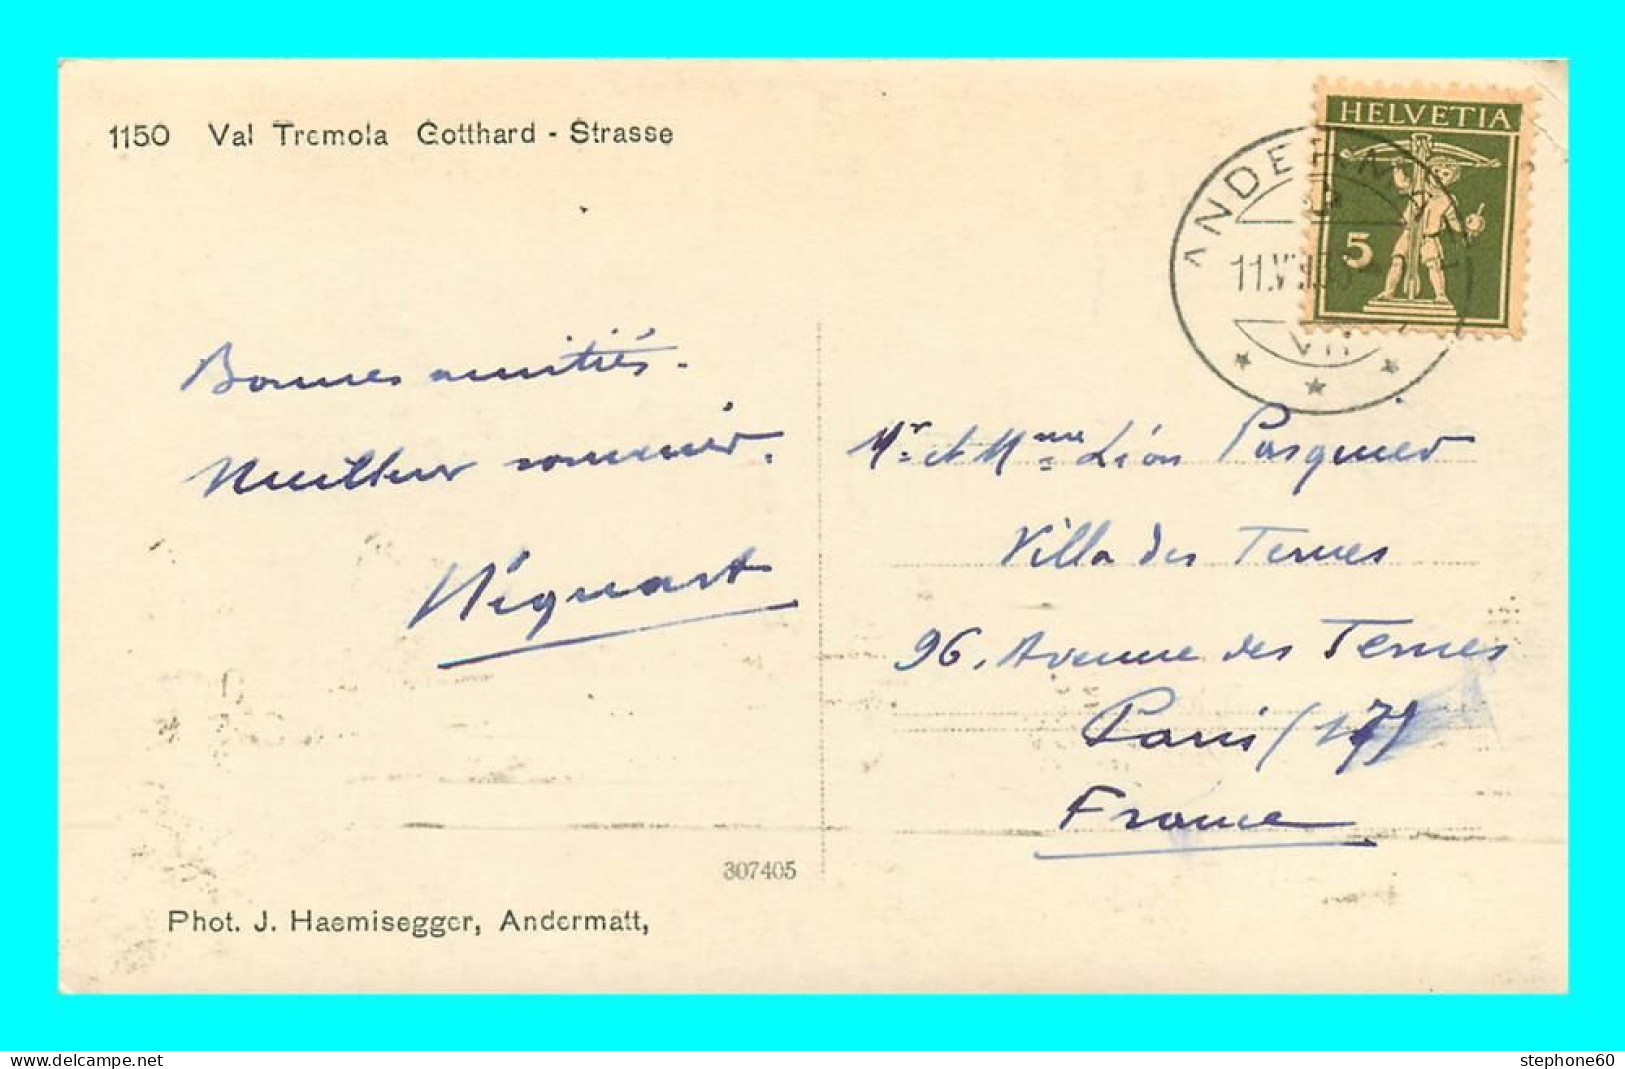 1150 Val Tremola Gotthard - Strasse
HELVETIA
5
ANDERMATT
11.VII.
Bonnes amitiés.
Meilleur souvenir.
Méquart
Mr. et Mme Léon Pasquier
Villa des Ternes
96, Avenue des Ternes
Paris (17)
France
307405
Phot. J. Haemisegger, Andermatt,
delcampe.net
stephone60